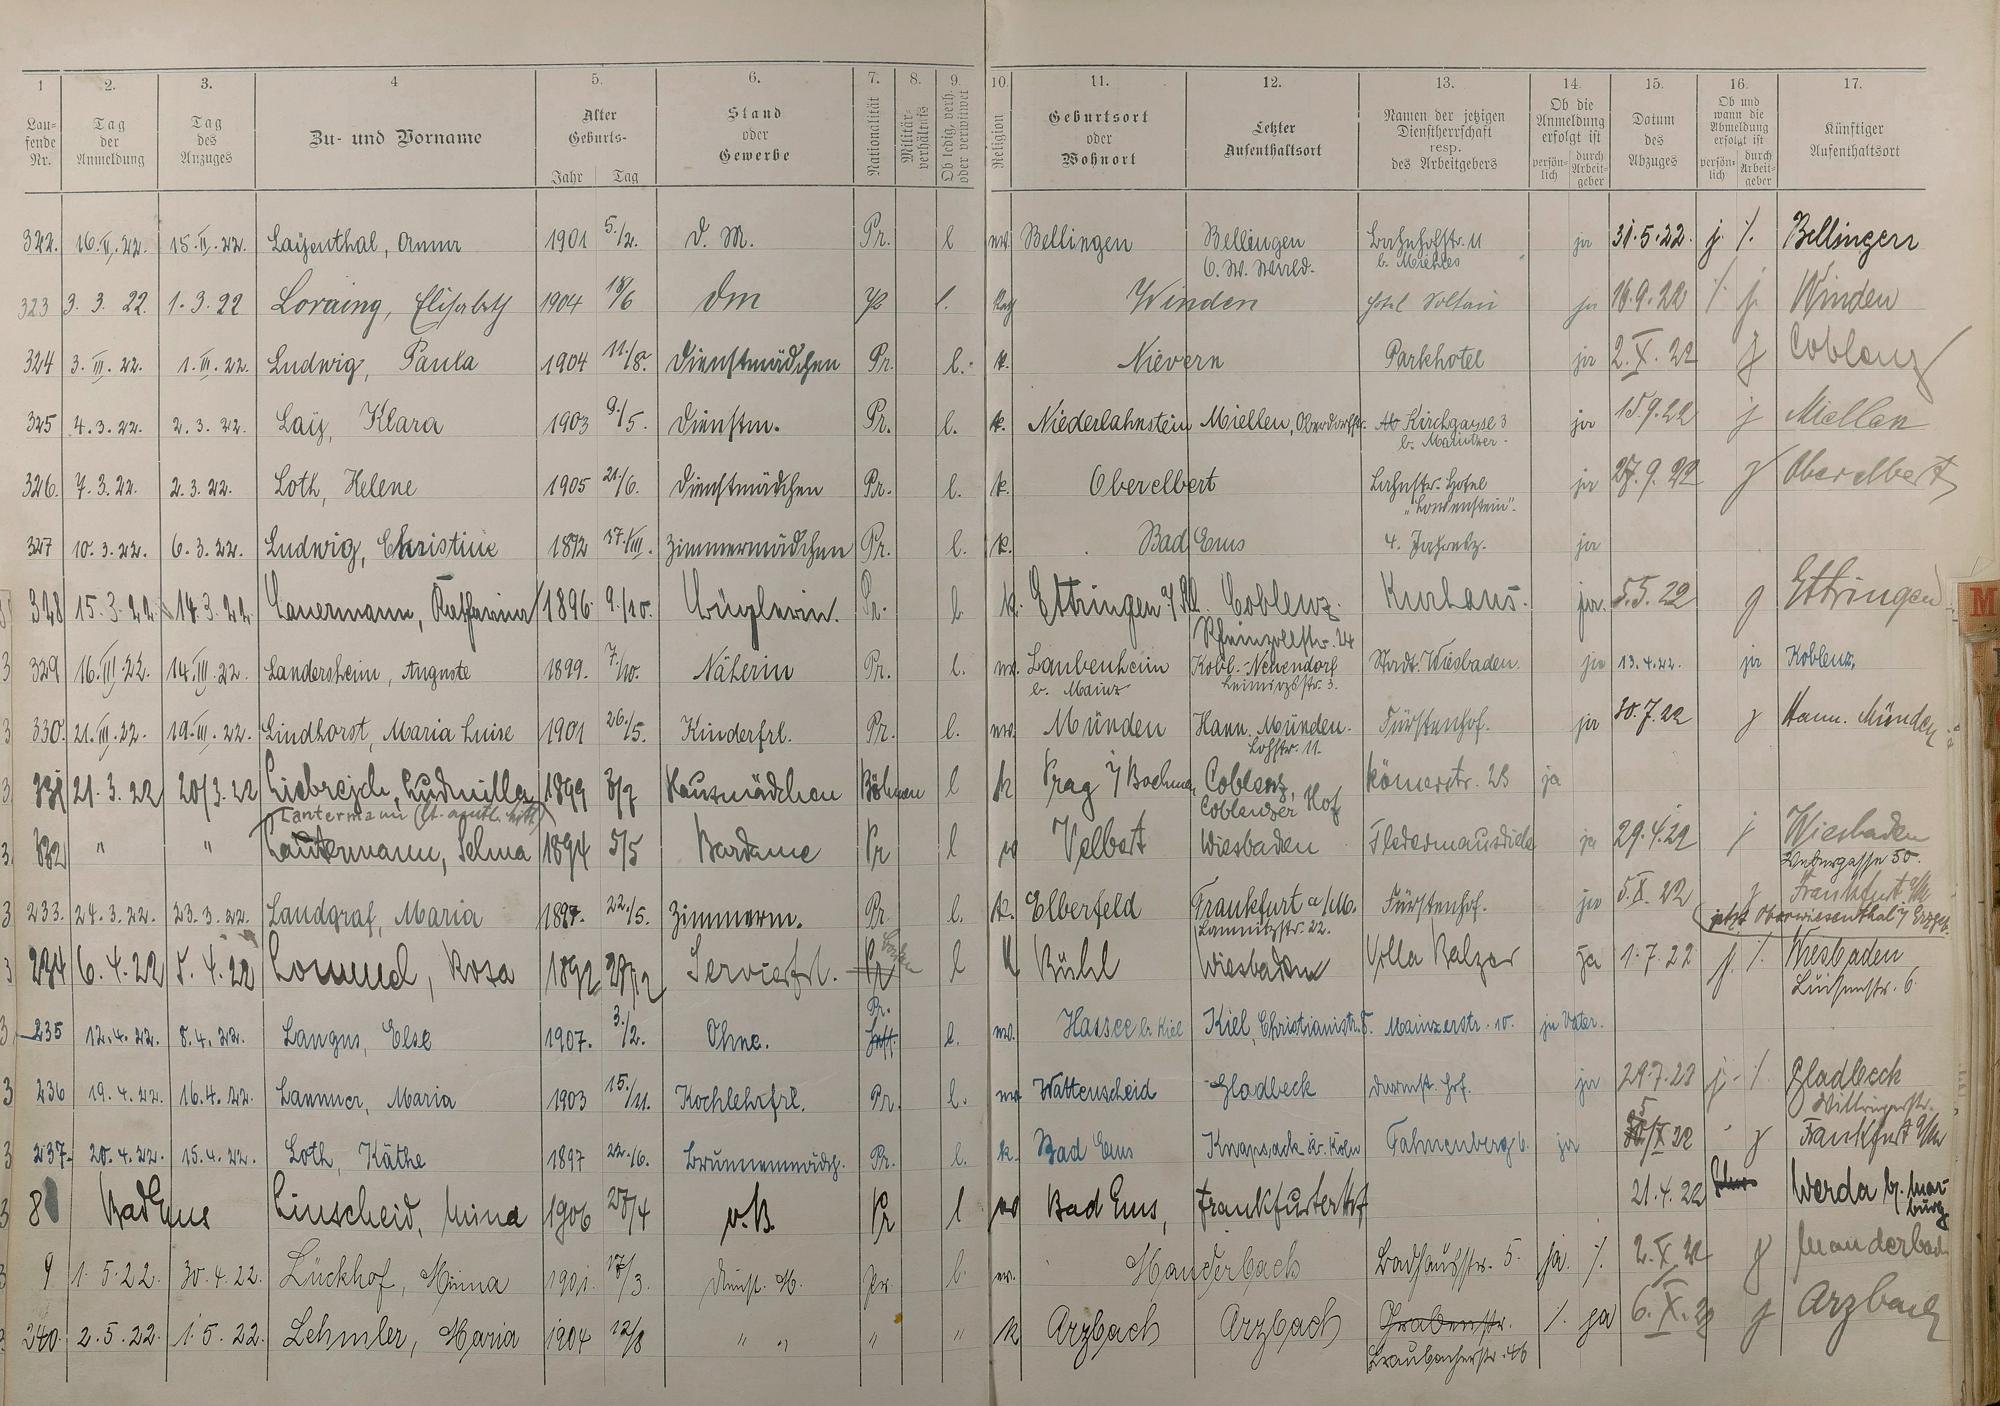 1 2. 3. 4 5. 6. 7. 8. 9. 10. 11. 12. 13. 14. 15. 16. 17.
Laufende Nr. Tag der Anmeldung Tag des Anzuges Zu- und Vorname Alter Geburts- Jahr Tag Stand oder Gewerbe Nationalität Militärverhältnis Ob ledig, verh. oder verwitwet Religion Geburtsort oder Wohnort Letzter Aufenthaltsort Namen der jetzigen Dienstherrschaft resp. des Arbeitgebers Ob die Anmeldung erfolgt ist persönlich durch Arbeitgeber Datum des Abzuges Ob und wann die Abmeldung erfolgt ist persönlich durch Arbeitgeber Künftiger Aufenthaltsort
322. 16.II.22. 15.II.22. Anna 1901 5./2. D. M. Pr. l ev. Bellingen Bellingen Bahnhofstr. 11 ja 31.5.22. j. /. Bellingen
323 3. 3. 22. 1. 3. 22 Elisabeth 1904 18/6 DM l. Kath Winden Hotel ja 16.9.22 /. j. Winden
324 3. III. 22. 1. III. 22. Ludwig, Paula 1904 11./8. Dienstmädchen Pr. l. k. Nievern Parkhotel ja 2. X. 22 j Coblenz
325 4. 3. 22. 2. 3. 22. Klara 1903 9./5. Dienstm. Pr. l. k. Niederlahnstein Miellen, Kirchgasse 3 ja 15.9.22 j Miellen
326. 7. 3. 22. 2. 3. 22. Loth, Helene 1905 21./6. Dienstmädchen Pr. l. k. Oberelbert Lahnstr. Hotel ja 27.9.22 j Oberelbert
327 10. 3. 22. 6. 3. 22. Ludwig, Christine 1892 17./III. Zimmermädchen Pr. l. k. Bad Ems ja
328 15. 3. 22 14. 3. 22. Katharina 1896 9./10. Büglerin. Pr. l k. Ettringen Coblenz. Kurhaus. ja. 5.5.22 j Ettringen
Rheinzollstr. 24
329 16. III. 22. 14. III. 22. Landersheim, Auguste 1899. 7./10. Näherin Pr. l. ev. Laubenheim Kobl.-Neuendorf Stadt. Wiesbaden. ja 13.4.22. ja Koblenz.
b. Mainz
330. 21. III. 22. 19. III. 22. Lindhorst, Maria Luise 1901 26./5. Kinderfrl. Pr. l. ev. Münden Hann. Münden. Fürstenhof. ja 30.7.22 j Hann. Münden
Lohstr. 11.
331 21. 3. 22 20/3. 22 Ludmilla 1899 3/9 Hausmädchen Böhmen l k Prag Coblenz, Römerstr. 28 ja
Coblenzer Hof
Lantermann
332 " " Selma 1894 5/5 Bardame Pr l ev Velbert Wiesbaden Fledermausdiele ja 29.4.22 j Wiesbaden
Webergasse 50.
233. 24. 3. 22. 23. 3. 22. Landgraf, Maria 1897. 22./5. Zimmerm. Pr. l. k. Elberfeld Frankfurt a/M. Fürstenhof. ja 5.X.22 j Frankfurt a/M
jetzt Oberwiesenthal i/ Erzgeb.
234 6. 4. 22 5. 4. 22 Rosa 1892 27/12 Servierfrl. Pr Baden l k Bühl Wiesbaden Villa Balzer Ja 1.7.22 j. /. Wiesbaden
Luisenstr. 6
235 12. 4. 22. 8. 4. 22. Else 1907. 3./2. Ohne. Pr. l. ev. Hassee b. Kiel Kiel, Christianistr. 8. Mainzerstr. 10. ja Vater.
236 19. 4. 22. 16. 4. 22. Maria 1903 15./11. Kochlehrfrl. Pr. l. ev Wattenscheid Gladbeck Darmst. Hof. ja 29.7.23 j. /. Gladbeck
237. 20. 4. 22. 15. 4. 22. Loth, Käthe 1897 22./6. Brunnenmädch. Pr. l. k. Bad Ems Knapsack Kr. Köln Fahnenberg 6. ja /X 22 j Frankfurt a/M
8 Bad Ems Linscheid, Mina 1906 27/4 o.B. Pr l ev Bad Ems, Frankfurterhof 21.4.22 Werda b/. Marburg
9 1. 5. 22. 30. 4. 22. Lückhof, Minna 1901. 17/3. Dienst. M. Pr. l. ev. Manderbach Badhausstr. 5. ja. /. 2. X. 22 j Manderbach
240. 2. 5. 22. 1. 5. 22. Lehmler, Maria 1904 12/8 " " " " k Arzbach Arzbach Grabenstr. /. ja 6. X. 22 j Arzbach
Braubacherstr. 46
M